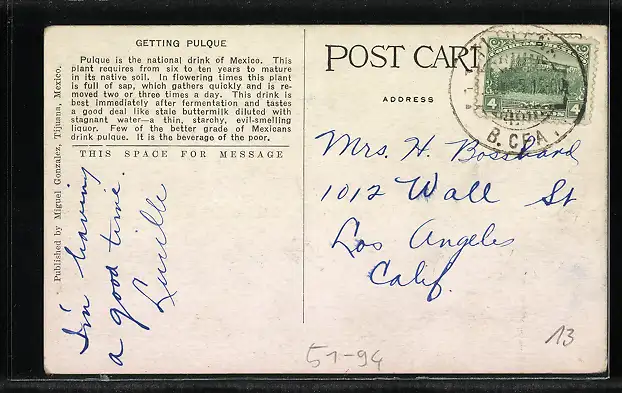 GETTING PULQUE
Pulque is the national drink of Mexico. This
plant requires from six to ten years to mature
in its native soil. In flowering times this plant
is full of sap, which gathers quickly and is re-
moved two or three times a day. This drink is
best immediately after fermentation and tastes
a good deal like stale buttermilk diluted with
stagnant water—a thin, starchy, evil-smelling
liquor. Few of the better grade of Mexicans
drink pulque. It is the beverage of the poor.
THIS SPACE FOR MESSAGE
Published by Miguel Gonzalez, Tijuana, Mexico.
I'm having
a good time.
Lucille
POST CARD
ADDRESS
4
4
B. CFA.
Mrs. H. Bosshard
1012 Wall St
Los Angeles
Calif.
51-94
13